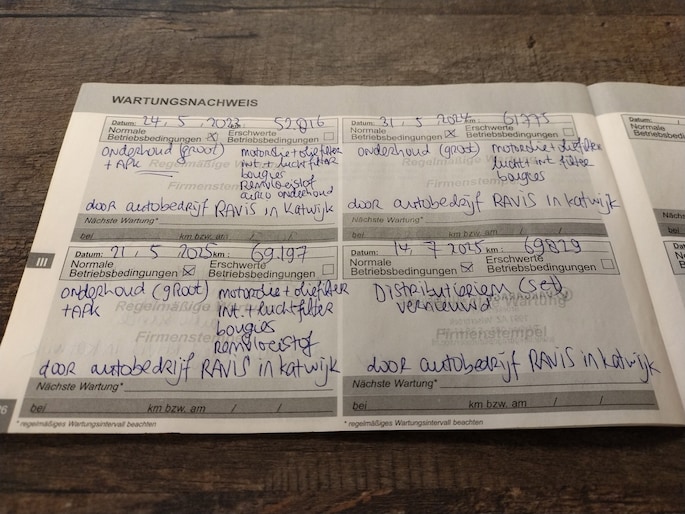 WARTUNGSNACHWEIS
Datum: 24, 5, 2023 52.016
Normale Betriebsbedingungen ☒ Erschwerte Betriebsbedingungen ☐
onderhoud (groot)
+ APK
motorolie + oliefilter
int. + luchtfilter
bougies
Remvloeistof
airco onderhoud
Firmenstempel
door autobedrijf RAVIS in Katwijk
Nächste Wartung*
bei km bzw. am / /
Datum: 31, 5, 2024 km: 61775
Normale Betriebsbedingungen ☒ Erschwerte Betriebsbedingungen ☐
onderhoud (groot)
motorolie + oliefilter
lucht + int filter
bougies
Firmenstempel
door autobedrijf RAVIS in Katwijk
Nächste Wartung*
bei km bzw. am / /
III
Datum: 21, 5 2025 km: 69.197
Normale Betriebsbedingungen ☒ Erschwerte Betriebsbedingungen ☐
onderhoud (groot)
+ APK
motorolie + oliefilter
int. + luchtfilter
bougies
Remvloeistof
Regelmäßige
Firmenstempel
door autobedrijf RAVIS in Katwijk
Nächste Wartung*
bei km bzw. am / /
Datum: 14, 7 2025 km: 69829
Normale Betriebsbedingungen ☒ Erschwerte Betriebsbedingungen ☐
Distributieriem (set)
vernieuwd
Firmenstempel
door autobedrijf RAVIS in Katwijk
Nächste Wartung*
bei km bzw. am / /
* regelmäßiges Wartungsintervall beachten
* regelmäßiges Wartungsintervall beachten